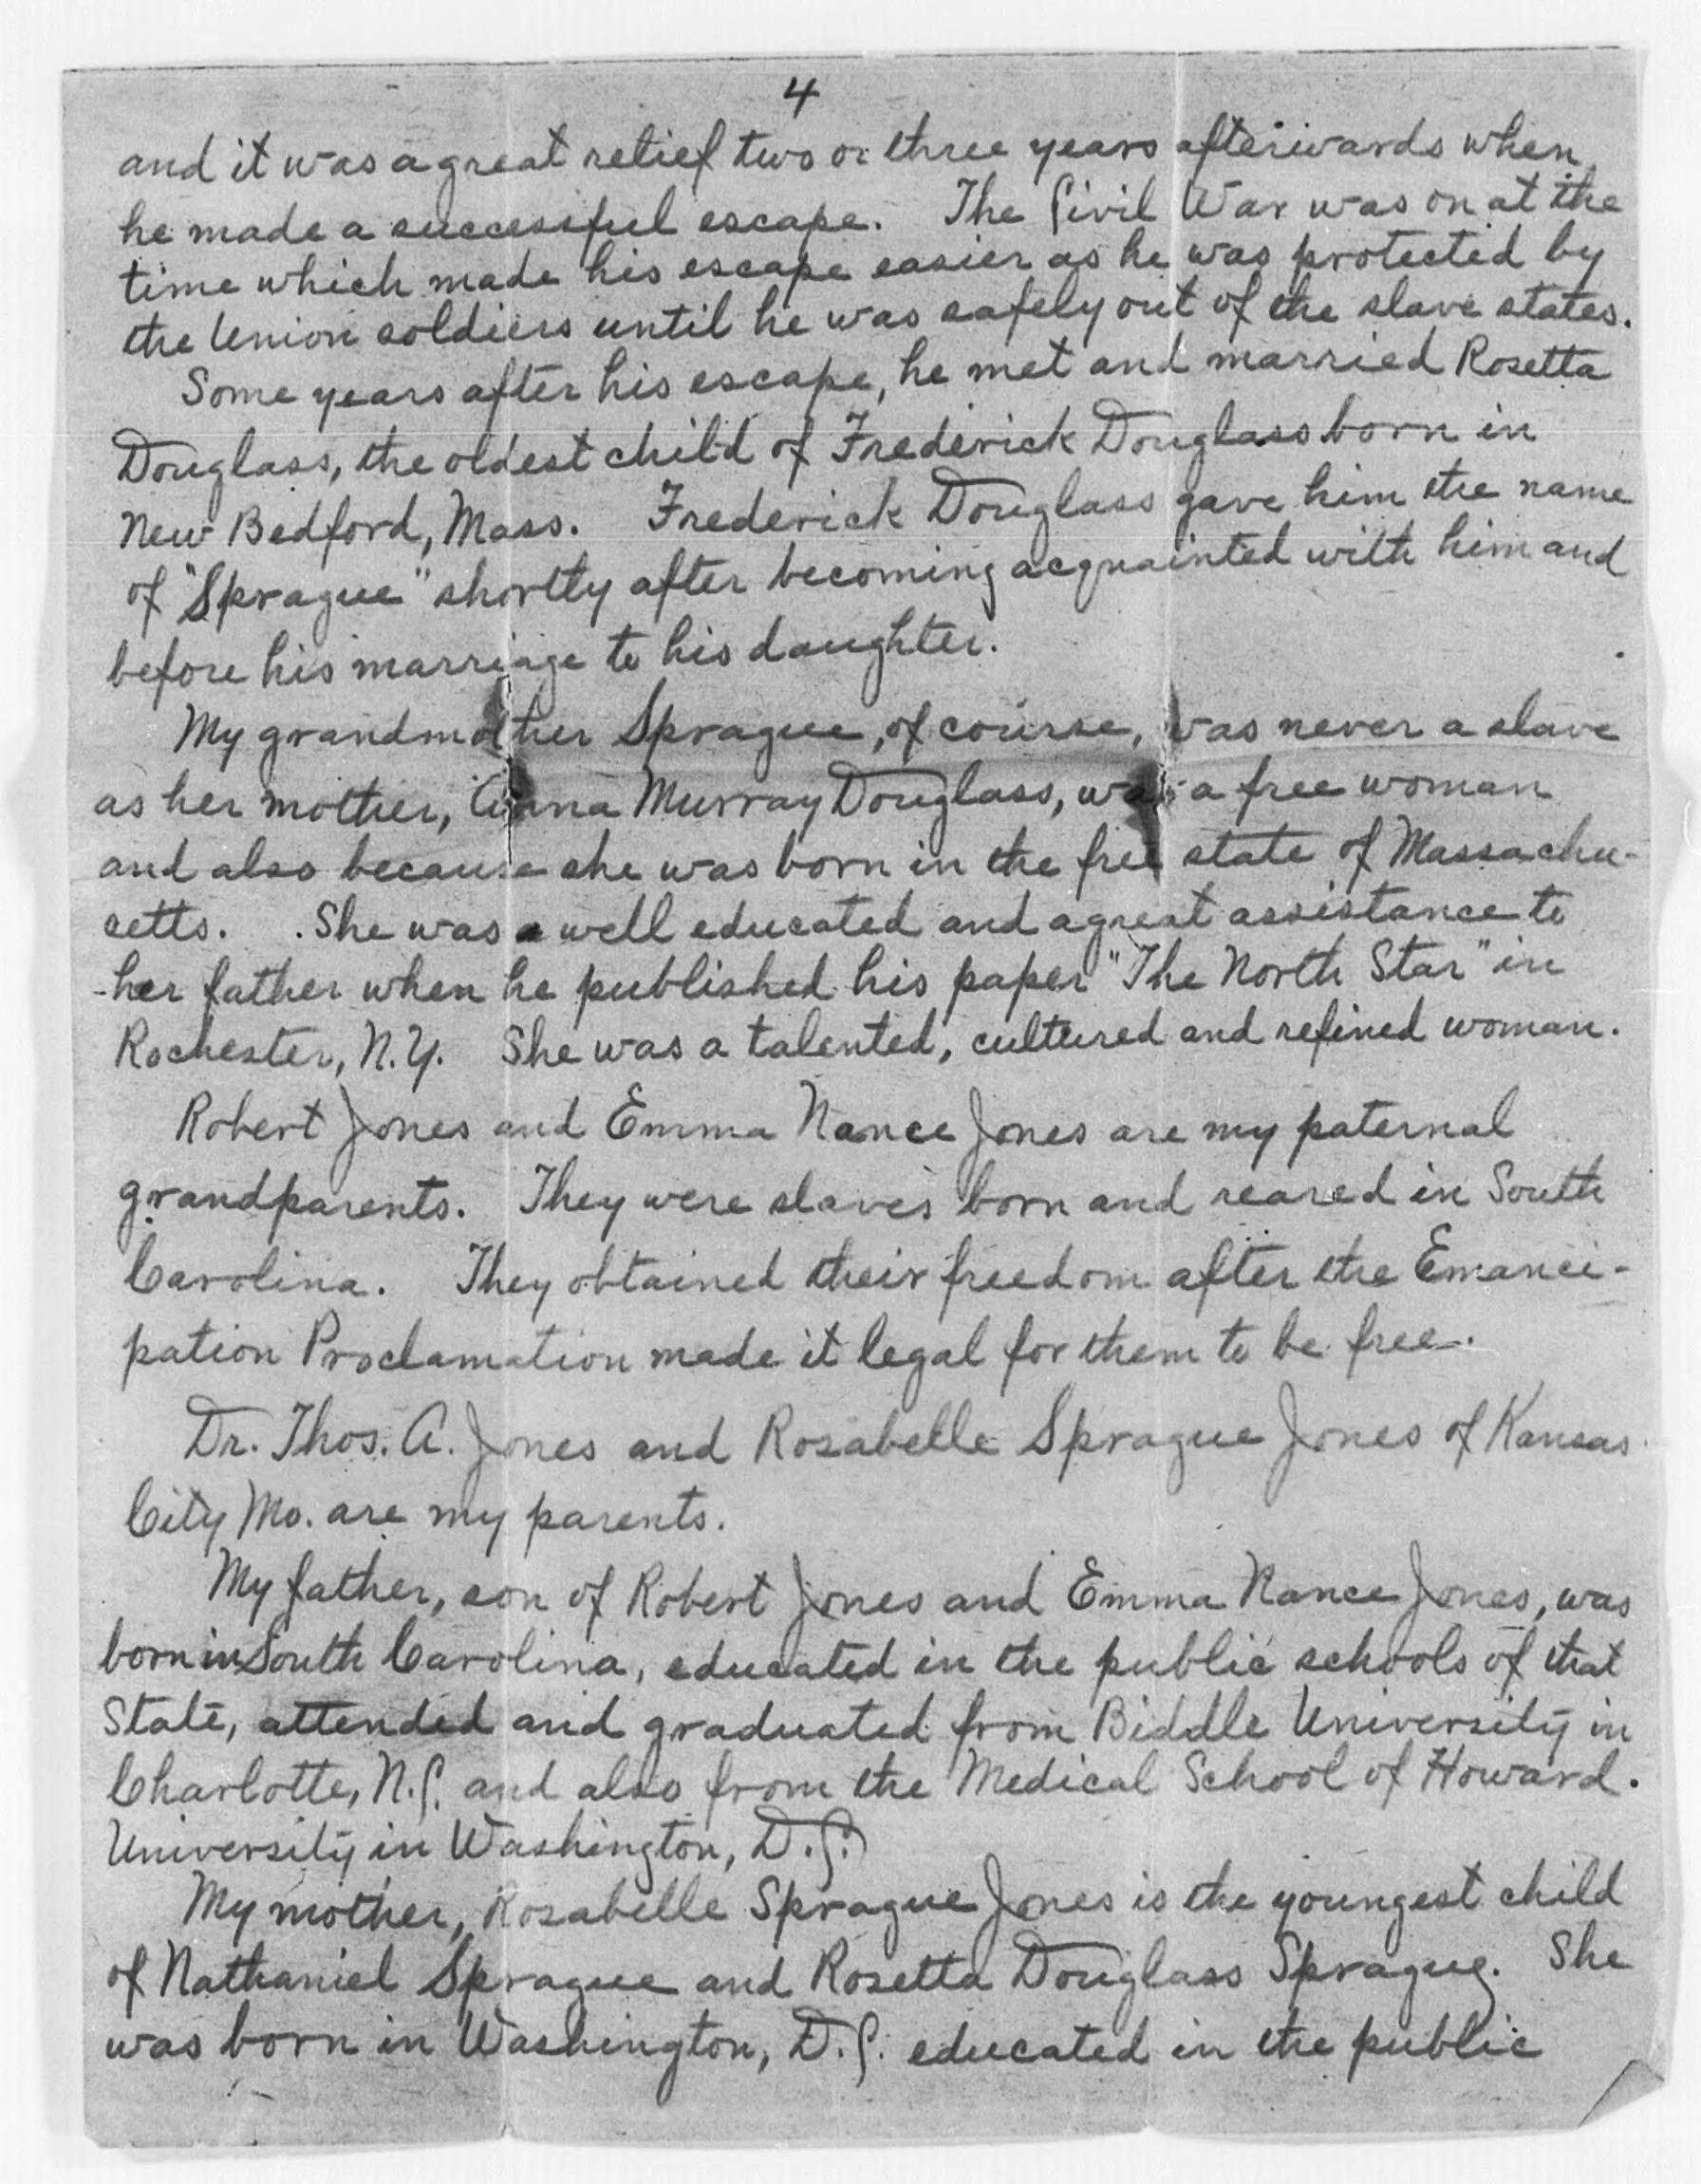 4
and it was a great relief two or three years afterwards when
he made a successful escape. The Civil War was on at the
time which made his escape easier as he was protected by
the Union soldiers until he was safely out of the slave states.
Some years after his escape, he met and married Rosetta
Douglass, the oldest child of Frederick Douglass born in
New Bedford, Mass. Frederick Douglass gave him the name
of "Sprague" shortly after becoming acquainted with him and
before his marriage to his daughter.
My grandmother Sprague, of course, was never a slave
as her mother, Anna Murray Douglass, was a free woman
and also because she was born in the free state of Massachu-
setts. She was a well educated and a great assistance to
her father when he published his paper "The North Star" in
Rochester, N.Y. She was a talented, cultured and refined woman.
Robert Jones and Emma Nance Jones are my paternal
grandparents. They were slaves born and reared in South
Carolina. They obtained their freedom after the Emanci-
pation Proclamation made it legal for them to be free.
Dr. Thos. A. Jones and Rosabelle Sprague Jones of Kansas
City Mo. are my parents.
My father, son of Robert Jones and Emma Nance Jones, was
born in South Carolina, educated in the public schools of that
State, attended and graduated from Biddle University in
Charlotte, N.C. and also from the Medical School of Howard
University in Washington, D.C.
My mother, Rosabelle Sprague Jones is the youngest child
of Nathaniel Sprague and Rosetta Douglass Sprague. She
was born in Washington, D.C. educated in the public